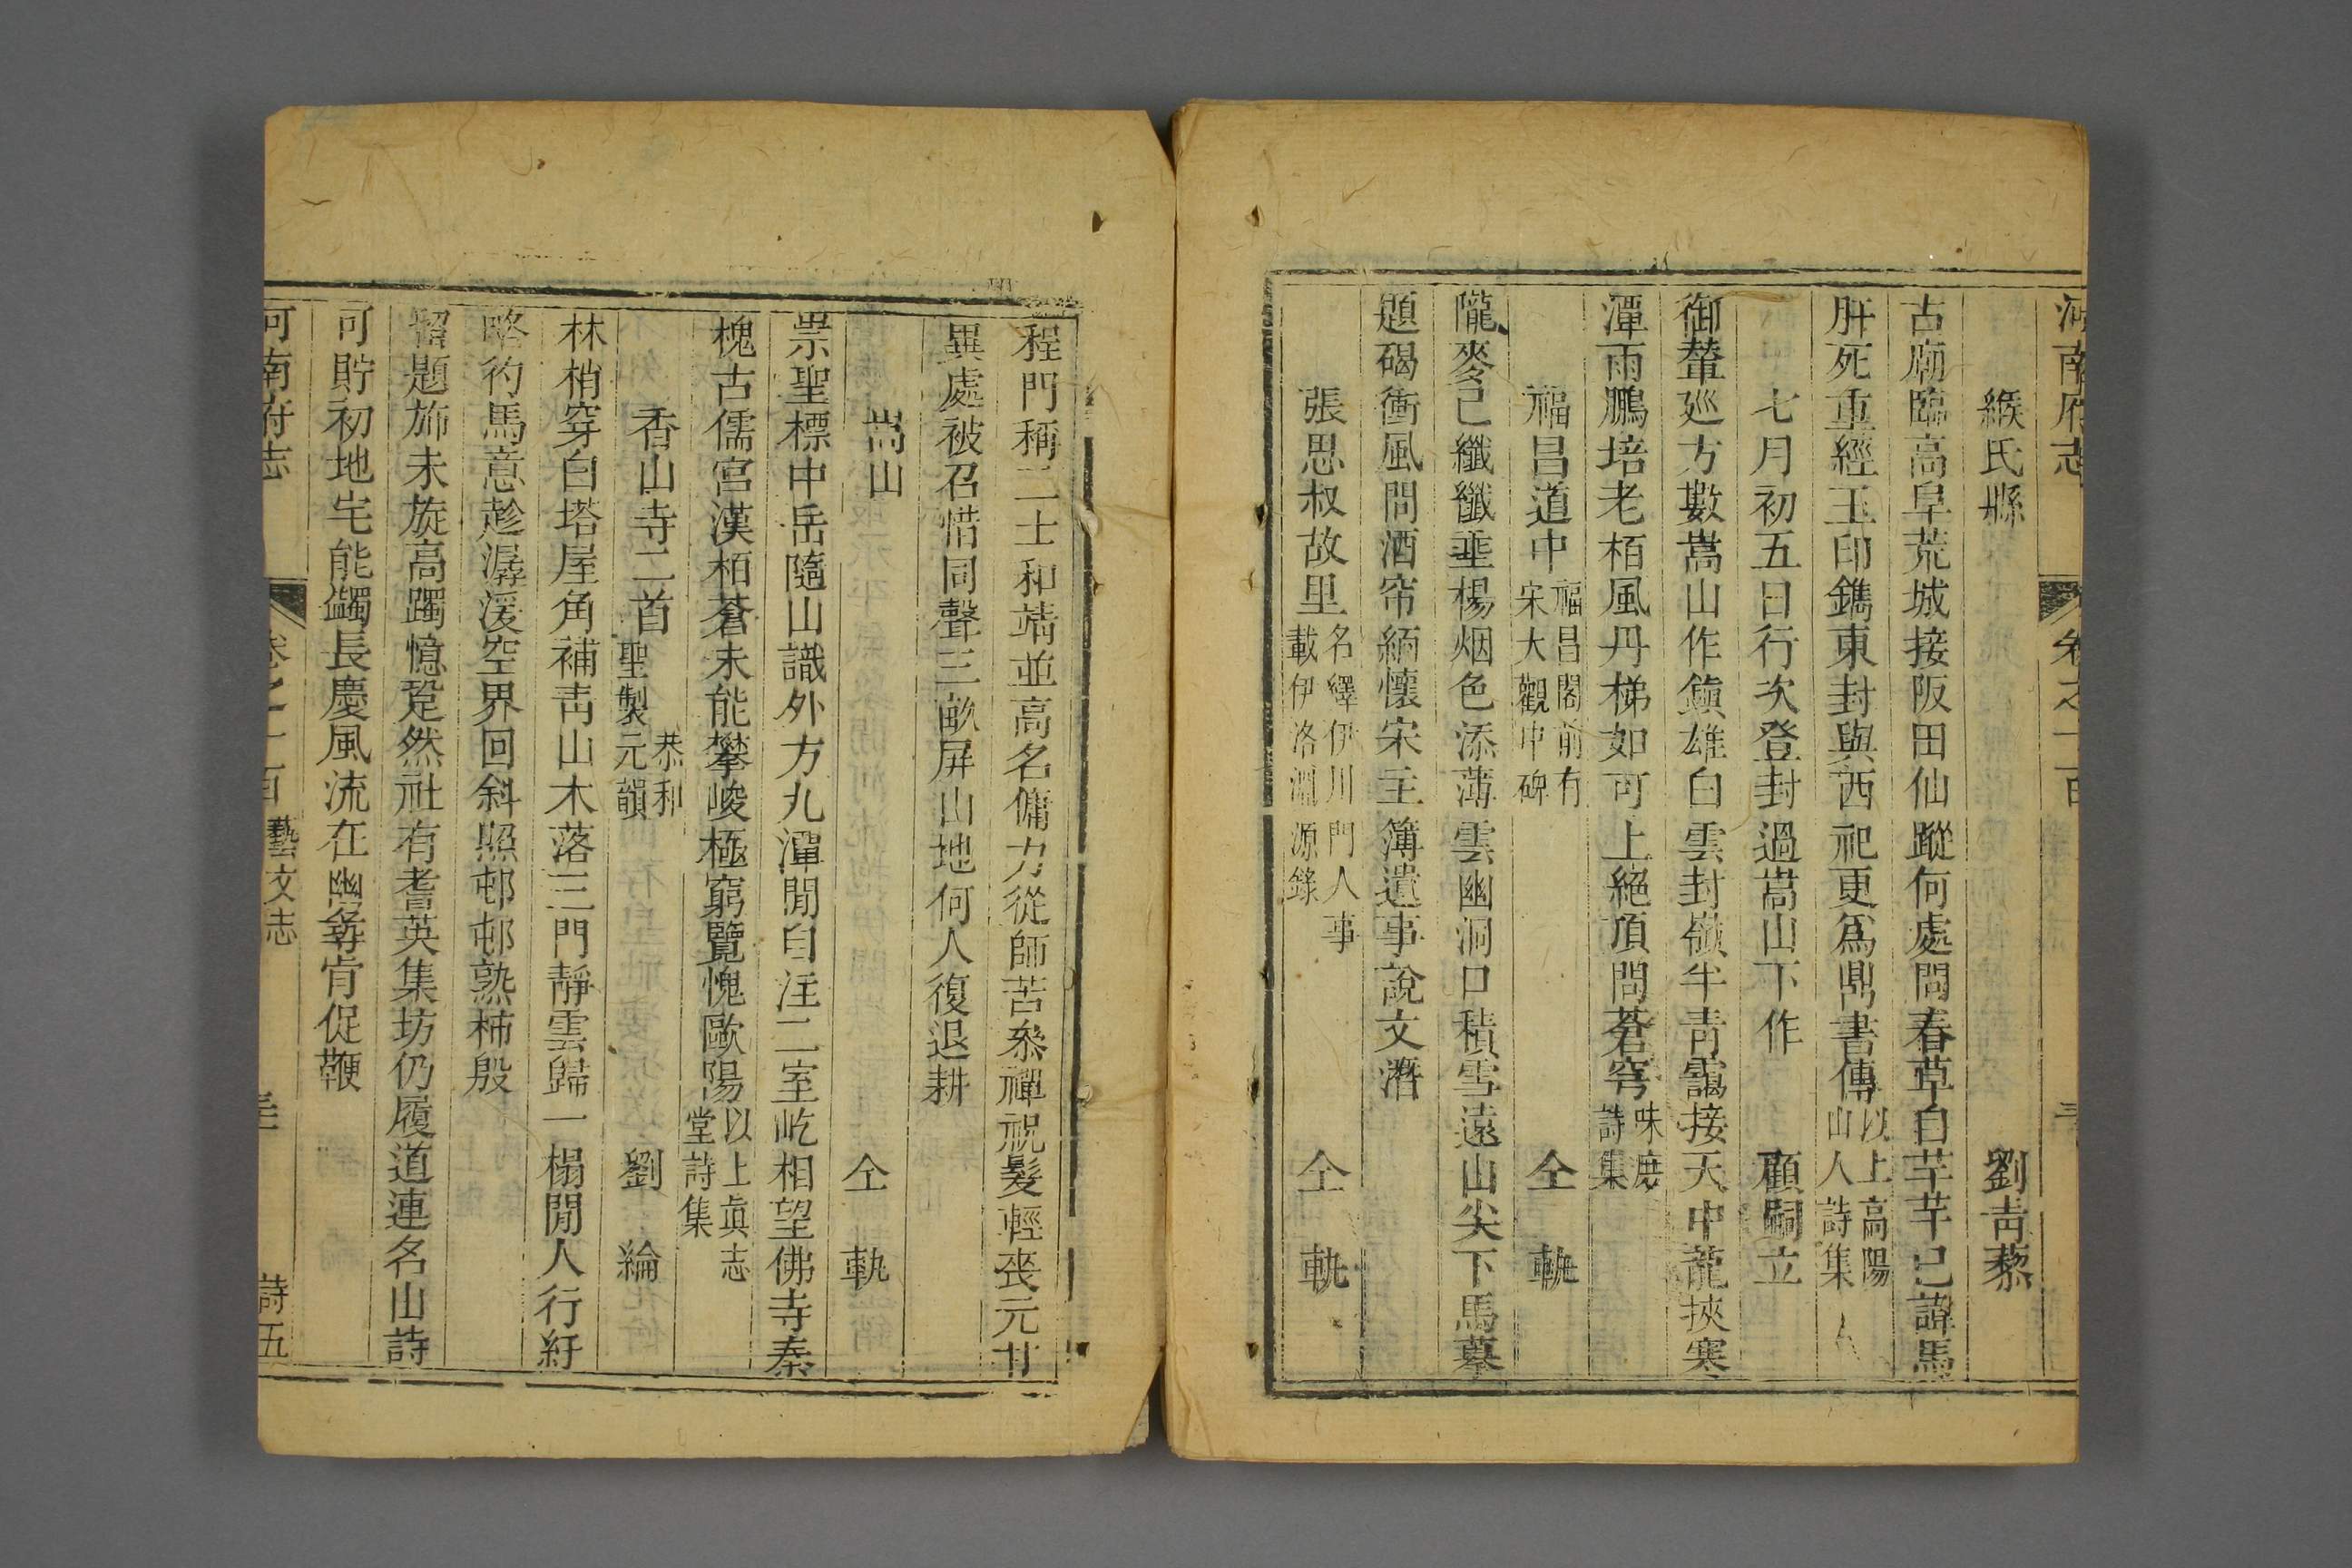 河南府志 卷之一百
緱氏縣 劉青藜
古廟臨高阜荒城接阪田仙蹤何處問春草自芊芊已諱馬
肝死重經玉印鐫東封與西祀更爲鼎書傳 以上高陽山人詩集
七月初五日行次登封過嵩山下作 顧嗣立
御輦廵方數嵩山作鎭雄白雲封嶺半青靄接天中龍挾寒
潭雨鵬培老栢風丹梯如可上絕頂問蒼穹 味𢈪詩集
福昌道中 福昌閣前有宋大觀中碑 仝軌
隴麥已纖纖垂楊烟色添薄雲幽洞口積雪遠山尖下馬摹
題碣衝風問酒帘緬懷宋主簿遺事說文潛
張思叔故里 名繹伊川門人事載伊洛淵源錄 仝軌
程門稱二士和靖並高名傭力從師苦叅禪祝髮輕喪元甘
異處被召惜同聲三畝屏山地何人復退耕
嵩山 仝軌
祟聖標中岳隨山識外方九潭閒自注二室屹相望佛寺秦
槐古儒宮漢栢蒼未能攀峻極窮覽愧歐陽 以上眞志堂詩集
香山寺二首 恭和聖製元韻 劉綸
林梢穿白塔屋角補靑山木落三門靜雲歸一榻閒人行紆
略彴馬意趁潺湲空界回斜照邨邨熟柿殷
留題斾未旋高躅憶跫然社有耆英集坊仍履道連名山詩
可貯初地宅能蠲長慶風流在幽尋肯促鞭
河南府志 卷之一百 藝文志 詩五